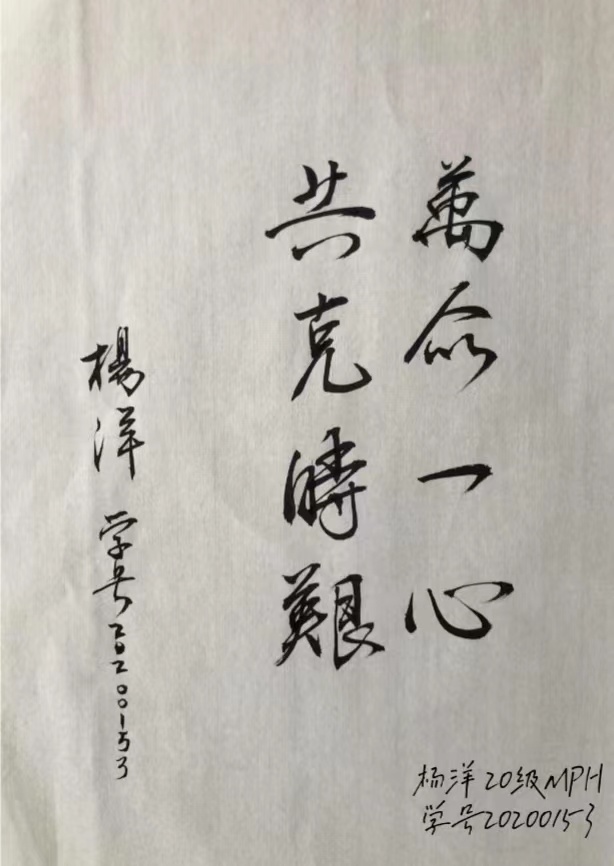 萬众一心
共克時艱
楊洋 学号20200153
杨洋 20级MPH
学号20200153